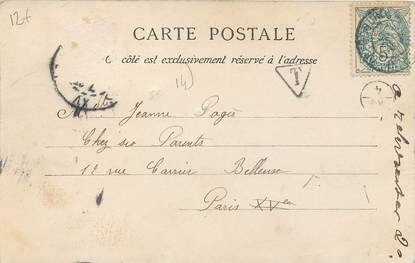 12+
CARTE POSTALE
Ce côté est exclusivement réservé à l'adresse
14
T
M Jeanne Pagès
Chez ses Parents
12 rue Carrier Belleuse
Paris XVe
5
4